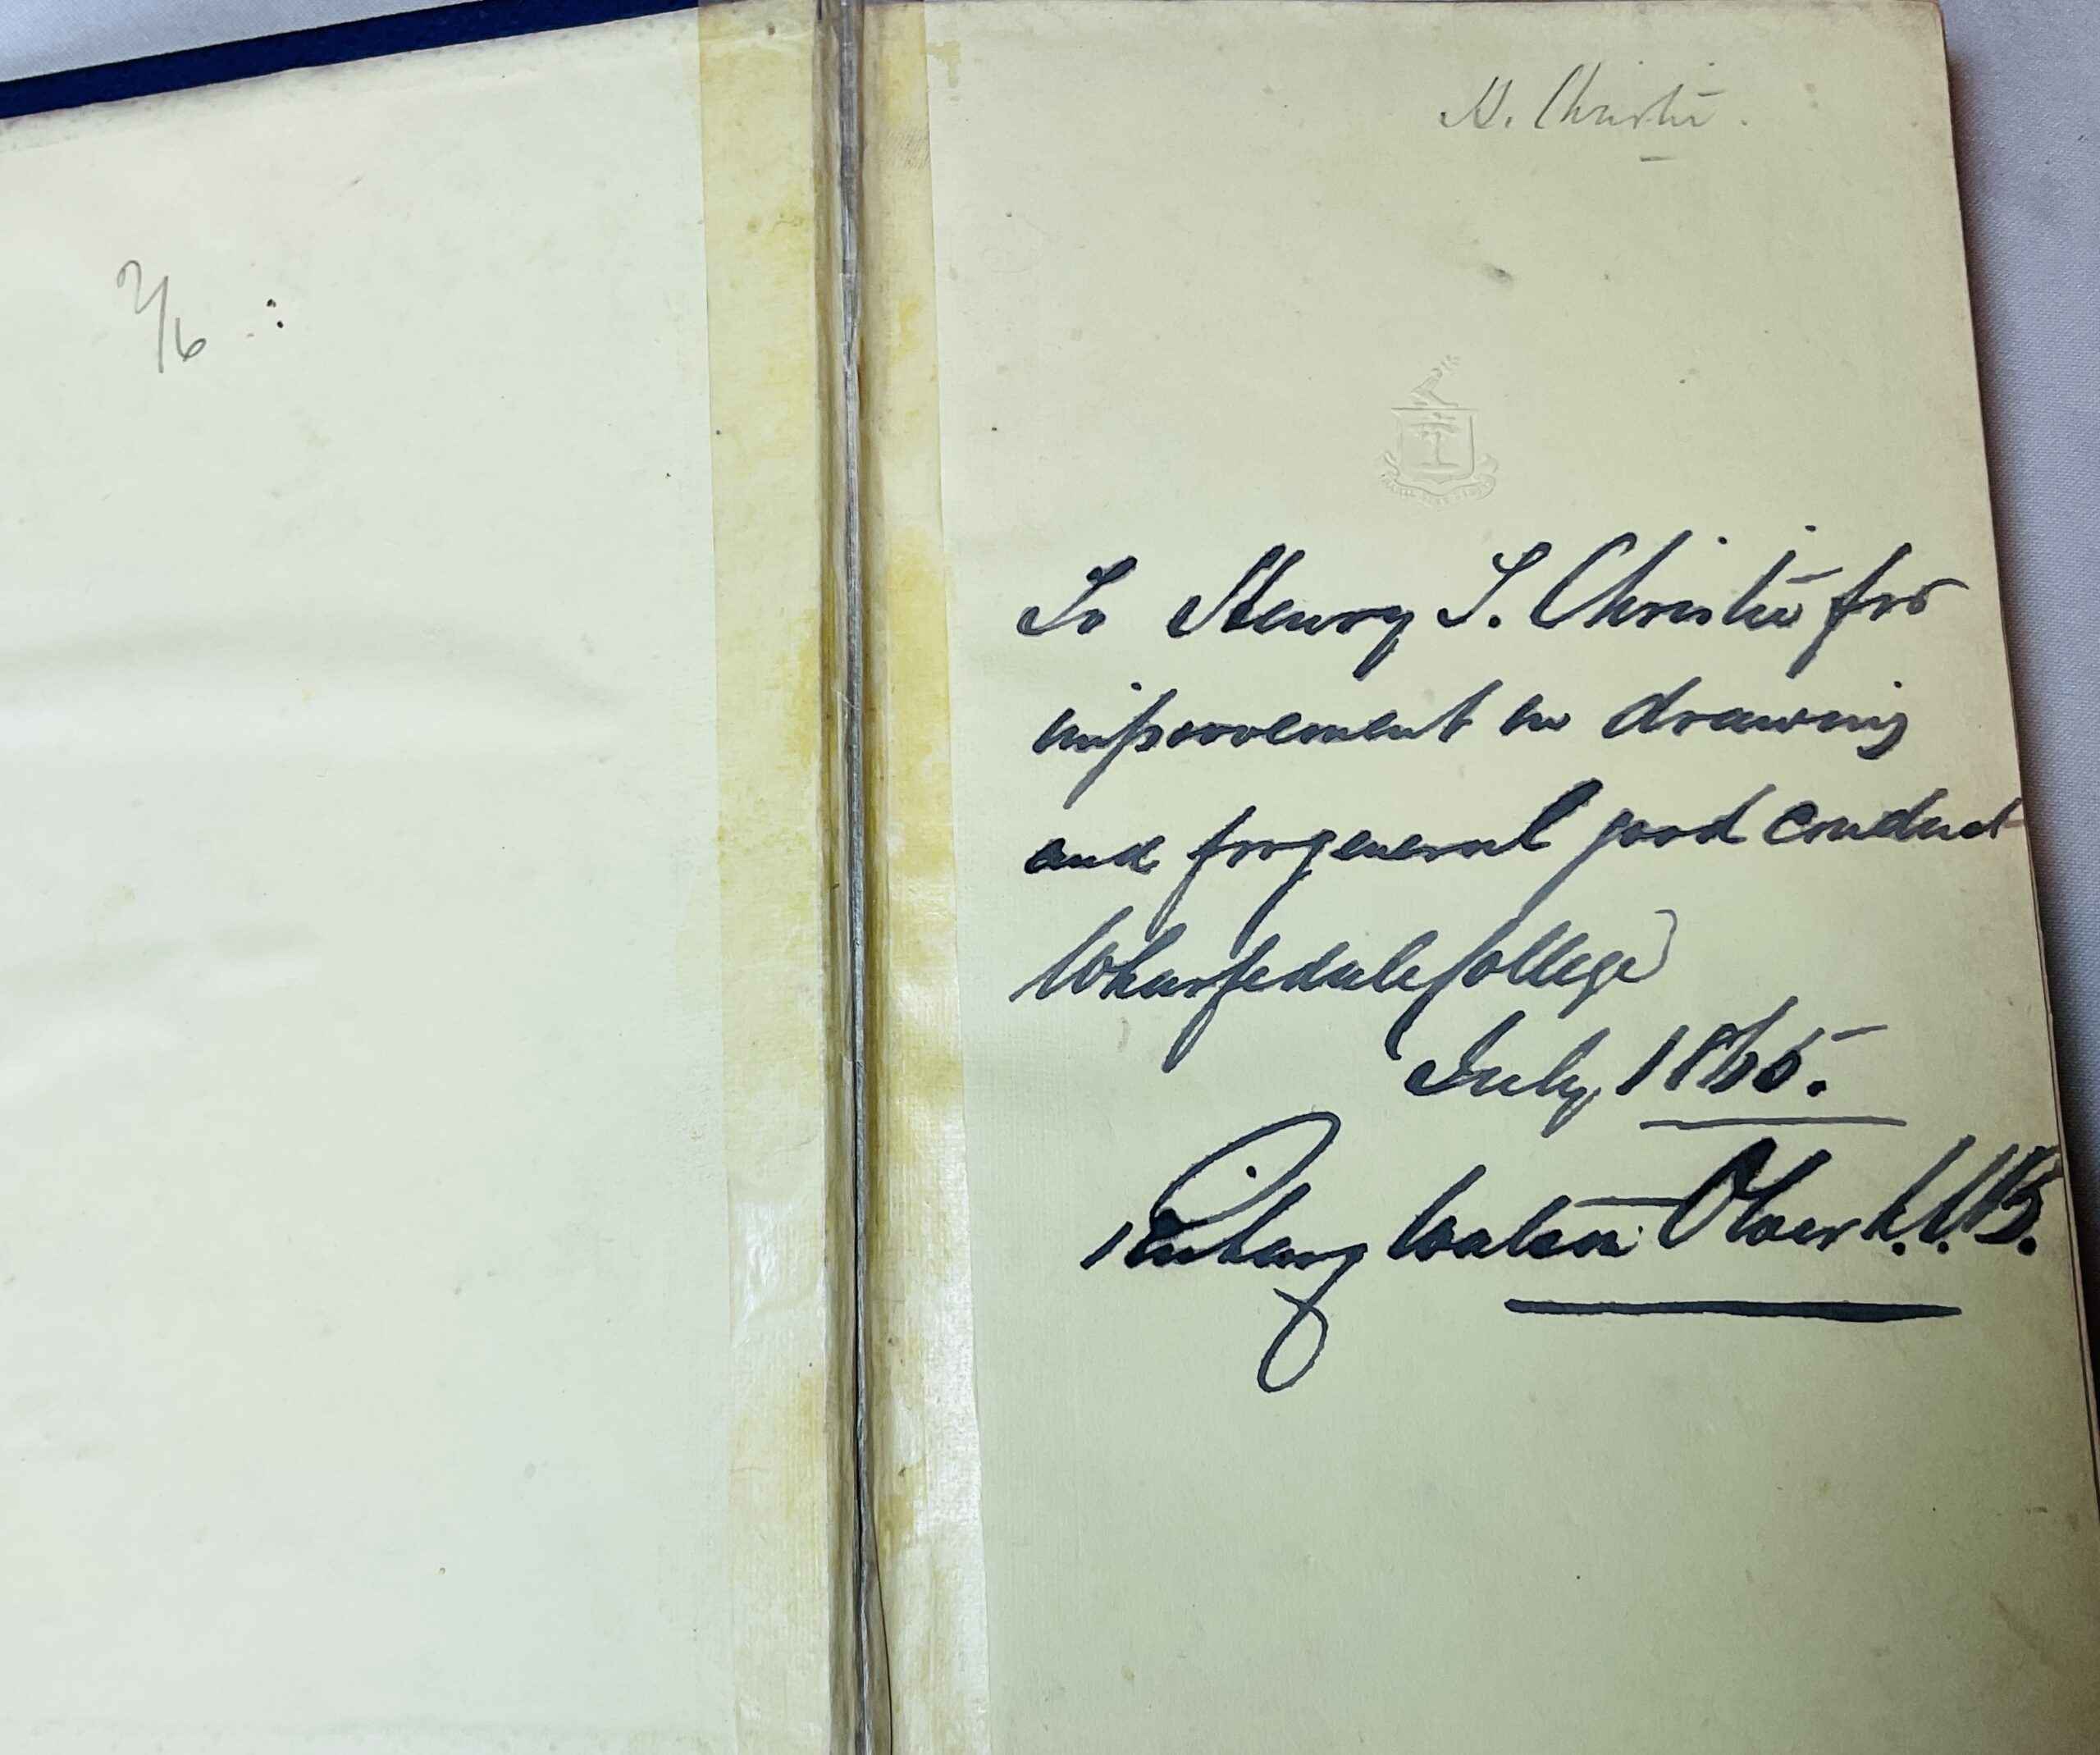 2/6
H. Christie.
To Henry S. Christie for
improvement in drawing
and for general good conduct
Wharfedale College
July 1865.
Watson Olver L.L.B.